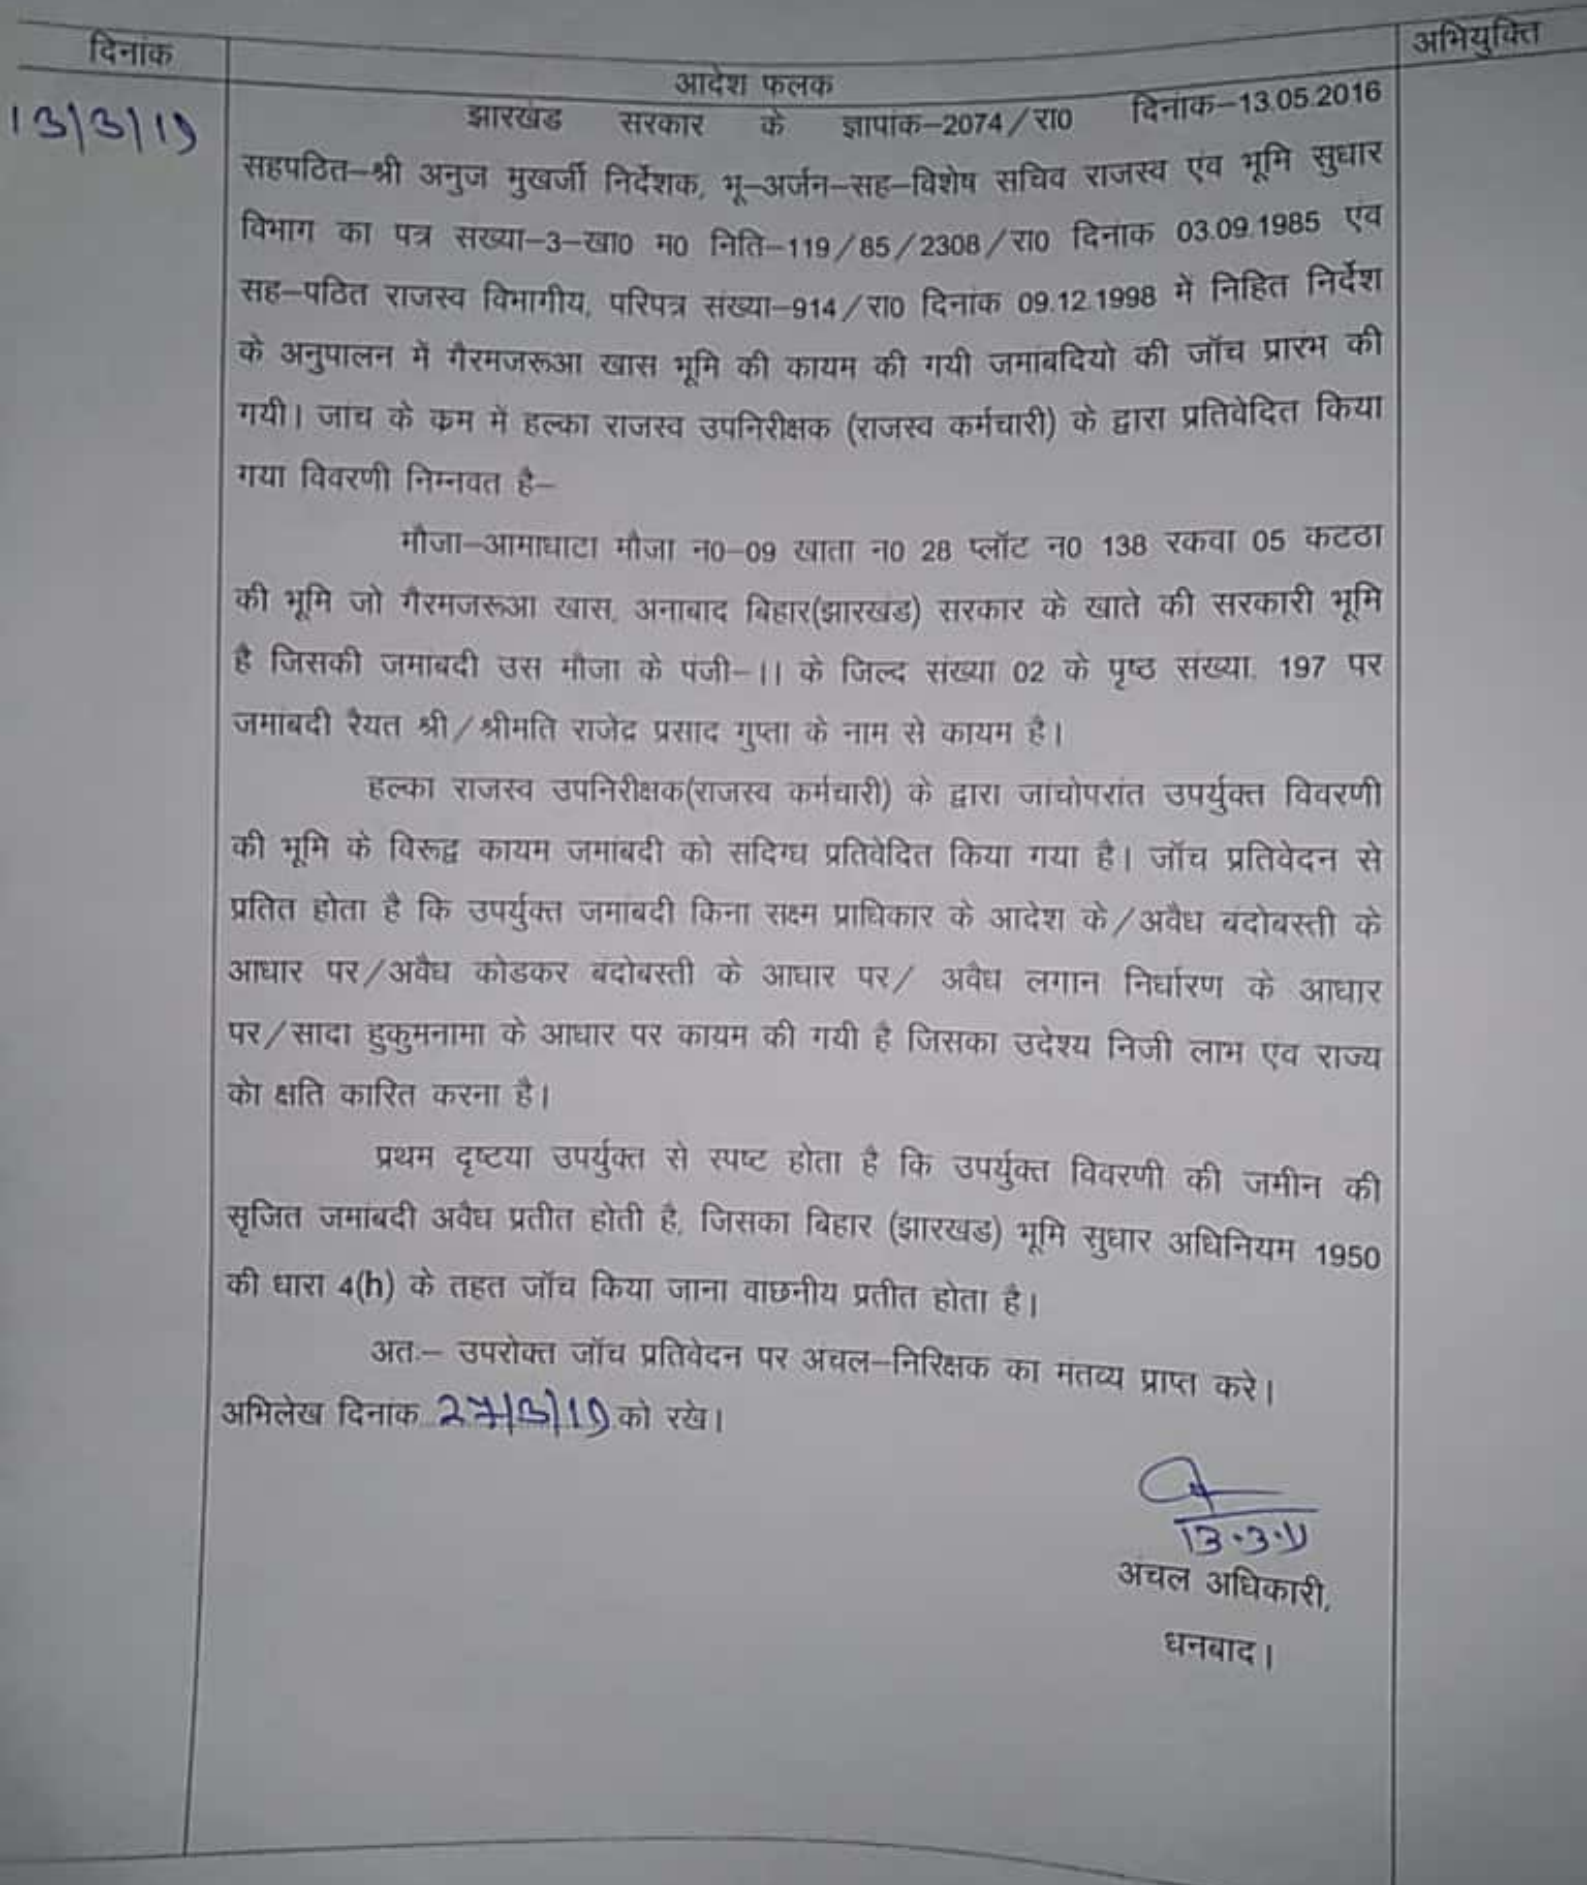 दिनांक
आदेश फलक
अभियुक्ति
13/3/19
झारखंड सरकार के ज्ञापांक–2074/रा0 दिनांक–13.05.2016
सहपठित–श्री अनुज मुखर्जी निर्देशक, भू–अर्जन–सह–विशेष सचिव राजस्व एंव भूमि सुधार
विभाग का पत्र संख्या–3–खा0 म0 निति–119/85/2308/रा0 दिनांक 03.09.1985 एंव
सह–पठित राजस्व विभागीय, परिपत्र संख्या–914/रा0 दिनांक 09.12.1998 में निहित निर्देश
के अनुपालन में गैरमजरूआ खास भूमि की कायम की गयी जमांबदियो की जॉच प्रारंभ की
गयी। जांच के कम में हल्का राजस्व उपनिरीक्षक (राजस्व कर्मचारी) के द्वारा प्रतिवेदित किया
गया विवरणी निम्नवत है–
मौजा–आमाघाटा मौजा न0–09 खाता न0 28 प्लॉट न0 138 रकवा 05 कटठा
की भूमि जो गैरमजरूआ खास, अनाबाद बिहार(झारखंड) सरकार के खाते की सरकारी भूमि
है जिसकी जमांबदी उस मौजा के पंजी–।। के जिल्द संख्या 02 के पृष्ठ संख्या. 197 पर
जमांबदी रैयत श्री/श्रीमति राजेंद्र प्रसाद गुप्ता के नाम से कायम है।
हल्का राजस्व उपनिरीक्षक(राजस्व कर्मचारी) के द्वारा जांचोपरांत उपर्युक्त विवरणी
की भूमि के विरूद्व कायम जमांबदी को संदिग्ध प्रतिवेदित किया गया है। जॉच प्रतिवेदन से
प्रतित होता है कि उपर्युक्त जमांबदी किना सक्ष्म प्राधिकार के आदेश के/अवैध बंदोबस्ती के
आधार पर/अवैध कोडकर बंदोबस्ती के आधार पर/ अवैध लगान निर्धारण के आधार
पर/सादा हुकुमनामा के आधार पर कायम की गयी है जिसका उदेश्य निजी लाभ एंव राज्य
केा क्षति कारित करना है।
प्रथम दृष्टया उपर्युक्त से स्पष्ट होता है कि उपर्युक्त विवरणी की जमीन की
सृजित जमांबदी अवैध प्रतीत होती है, जिसका बिहार (झारखंड) भूमि सुधार अधिनियम 1950
की धारा 4(h) के तहत जॉच किया जाना वाछनीय प्रतीत होता है।
अतः– उपरोक्त जॉच प्रतिवेदन पर अंचल–निरिक्षक का मंतव्य प्राप्त करे।
अभिलेख दिनांक 27/3/19 को रखे।
13.3.19
अंचल अधिकारी,
धनबाद।